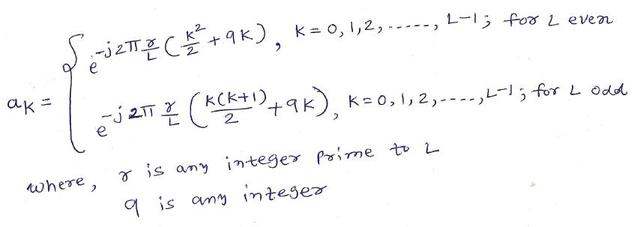 a_k = { e^{-j2π r/L (k²/2 + qk)}, k = 0, 1, 2, -----, L-1; for L even
e^{-j2π r/L (k(k+1)/2 + qk)}, k = 0, 1, 2, ----, L-1; for L odd
where, r is any integer prime to L
q is any integer